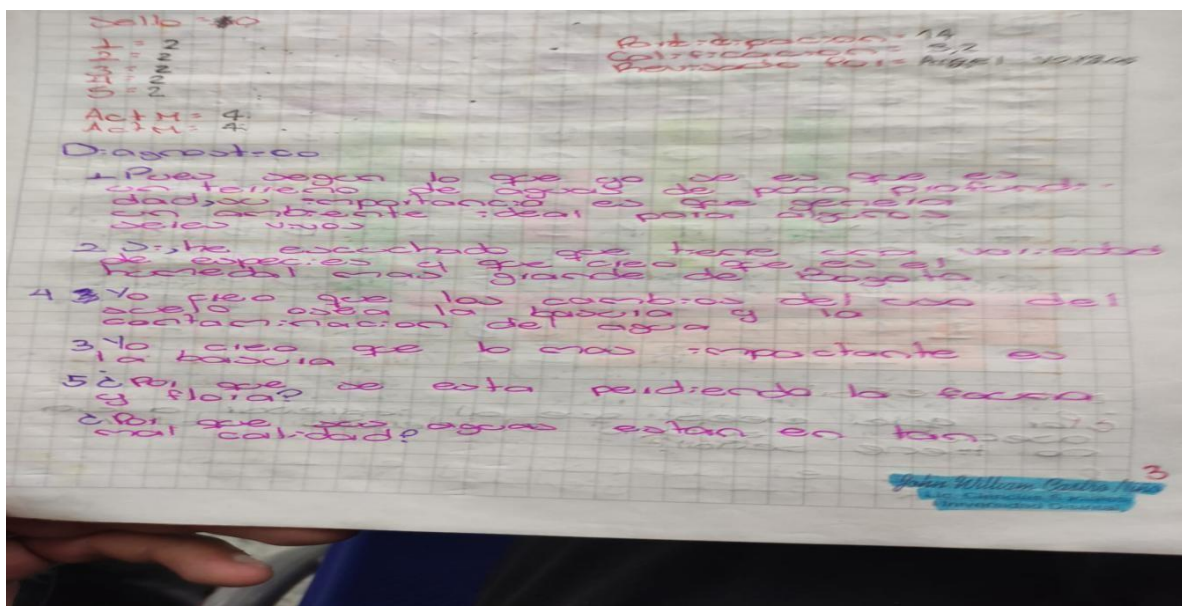 Sello = 0
1 = 2
2 = 2
3 = 2
4 = 2
5 = 2
Participacion = 14
Calificacion = 3,2
Revisado por =
Act M = 4
Act M = 4
Diagnostico
1. Pues segun lo que yo se es que es
un terreno de aguas de poca profundi-
dad, su importancia es que genera
un ambiente ideal para algunos
seres vivos
2. Si, he escuchado que tiene una variedad
de especies y que creo que es el
humedal mas grande de Bogota
4 Yo creo que los cambios del uso del
suelo esta la basura y la
contaminacion del agua
3. Yo creo que lo mas importante es
la basura
5 ¿Por que se esta perdiendo la fauna
y flora?
¿Por que sus aguas estan en tan
mal calidad?
3
John William
Lic. Ciencias